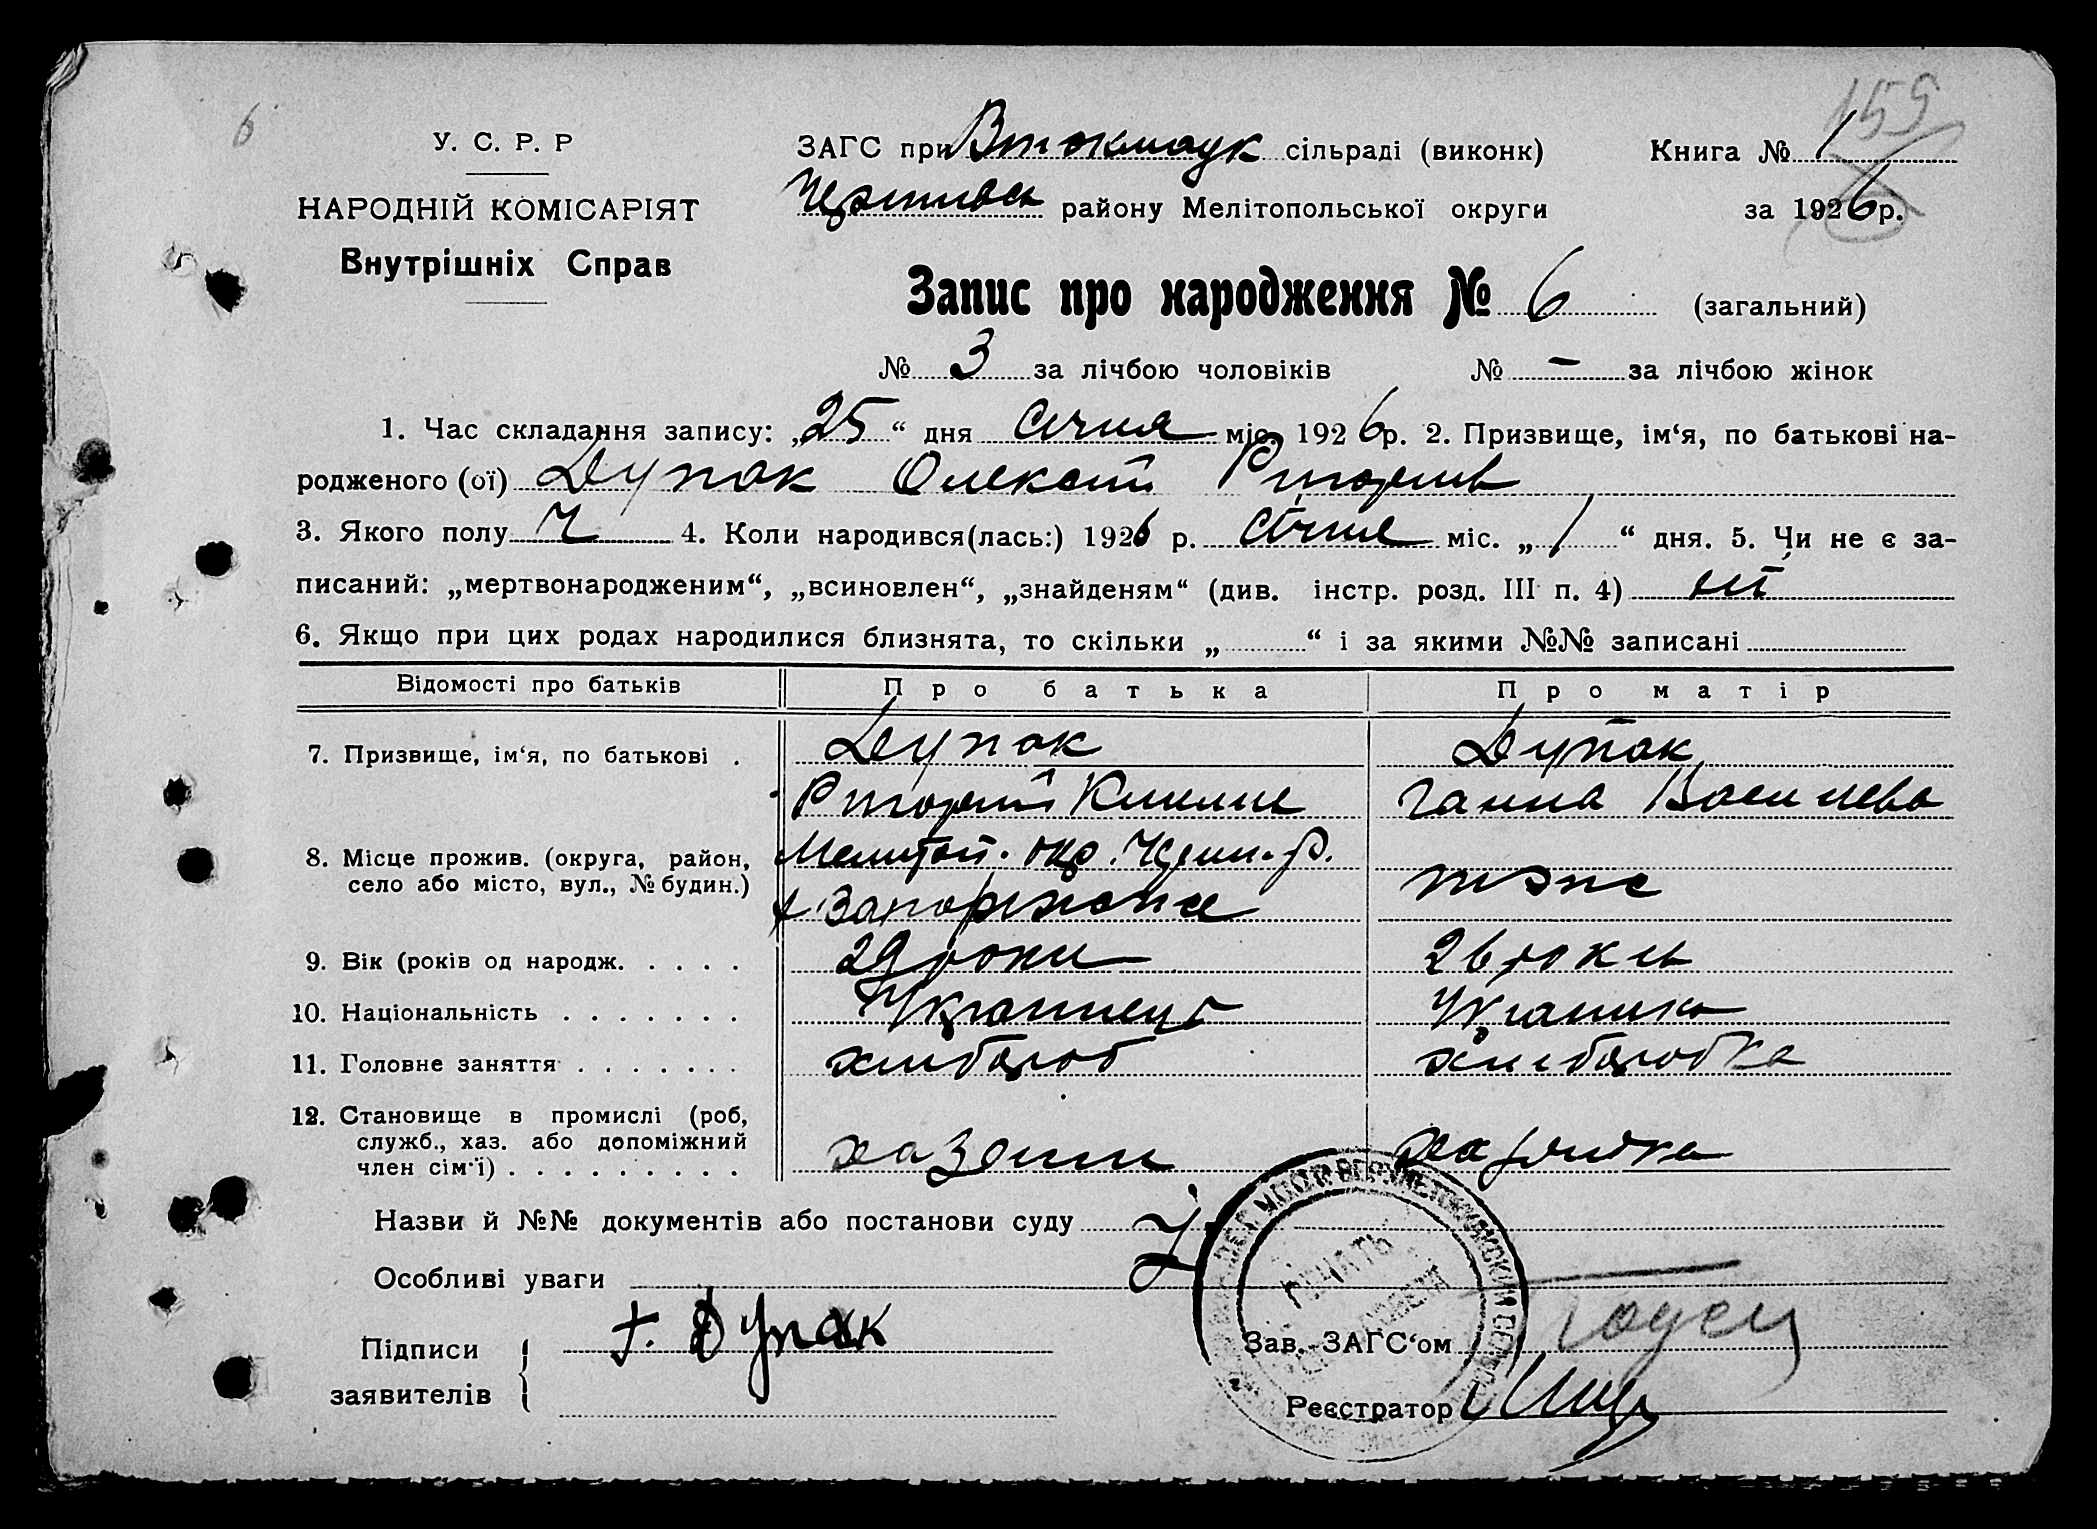 6
155
У. С. Р. Р
НАРОДНІЙ КОМІСАРІЯТ
Внутрішніх Справ
ЗАГС при Втокмаук сільраді (виконк) Книга № 1
району Мелітопольської округи за 1926 р.
Запис про народження № 6 (загальний)
№ 3 за лічбою чоловіків № – за лічбою жінок
1. Час складання запису: „25“ дня Січня міс. 1926 р. 2. Призвище, ім‘я, по батькові на-
родженого (ої) Дупак Олексій
3. Якого полу Ч 4. Коли народився(лась:) 1926 р. Січня міс. „1“ дня. 5. Чи не є за-
писаний: „мертвонародженим“, „всиновлен“, „знайденям“ (див. інстр. розд. III п. 4) ні
6. Якщо при цих родах народилися близнята, то скільки „ “ і за якими №№ записані
Відомості про батьків Про батька Про матір
7. Призвище, ім‘я, по батькові . Дупак Дупак
Ганна Василева
8. Місце прожив. (округа, район, Мелітоп. окр. р.
село або місто, вул., № будин.) тоже
9. Вік (років од народж. . . . . 29 роки 26 роки
10. Національність . . . . . . . Українець Українка
11. Головне заняття . . . . . . . хлібороб хліборобка
12. Становище в промислі (роб,
служб., хаз. або допоміжний
член сім‘ї) . . . . . . . . . хазяин хазяйка
Назви й №№ документів або постанови суду
Особливі уваги
Підписи
заявителів
Дупак
ПЕЧАТЬ
Зав. ЗАГС‘ом
Реєстратор